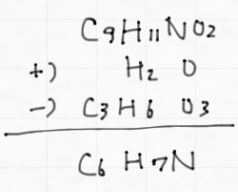 C9H11NO2
+) H2 O
-) C3H6 O3
C6 H7N